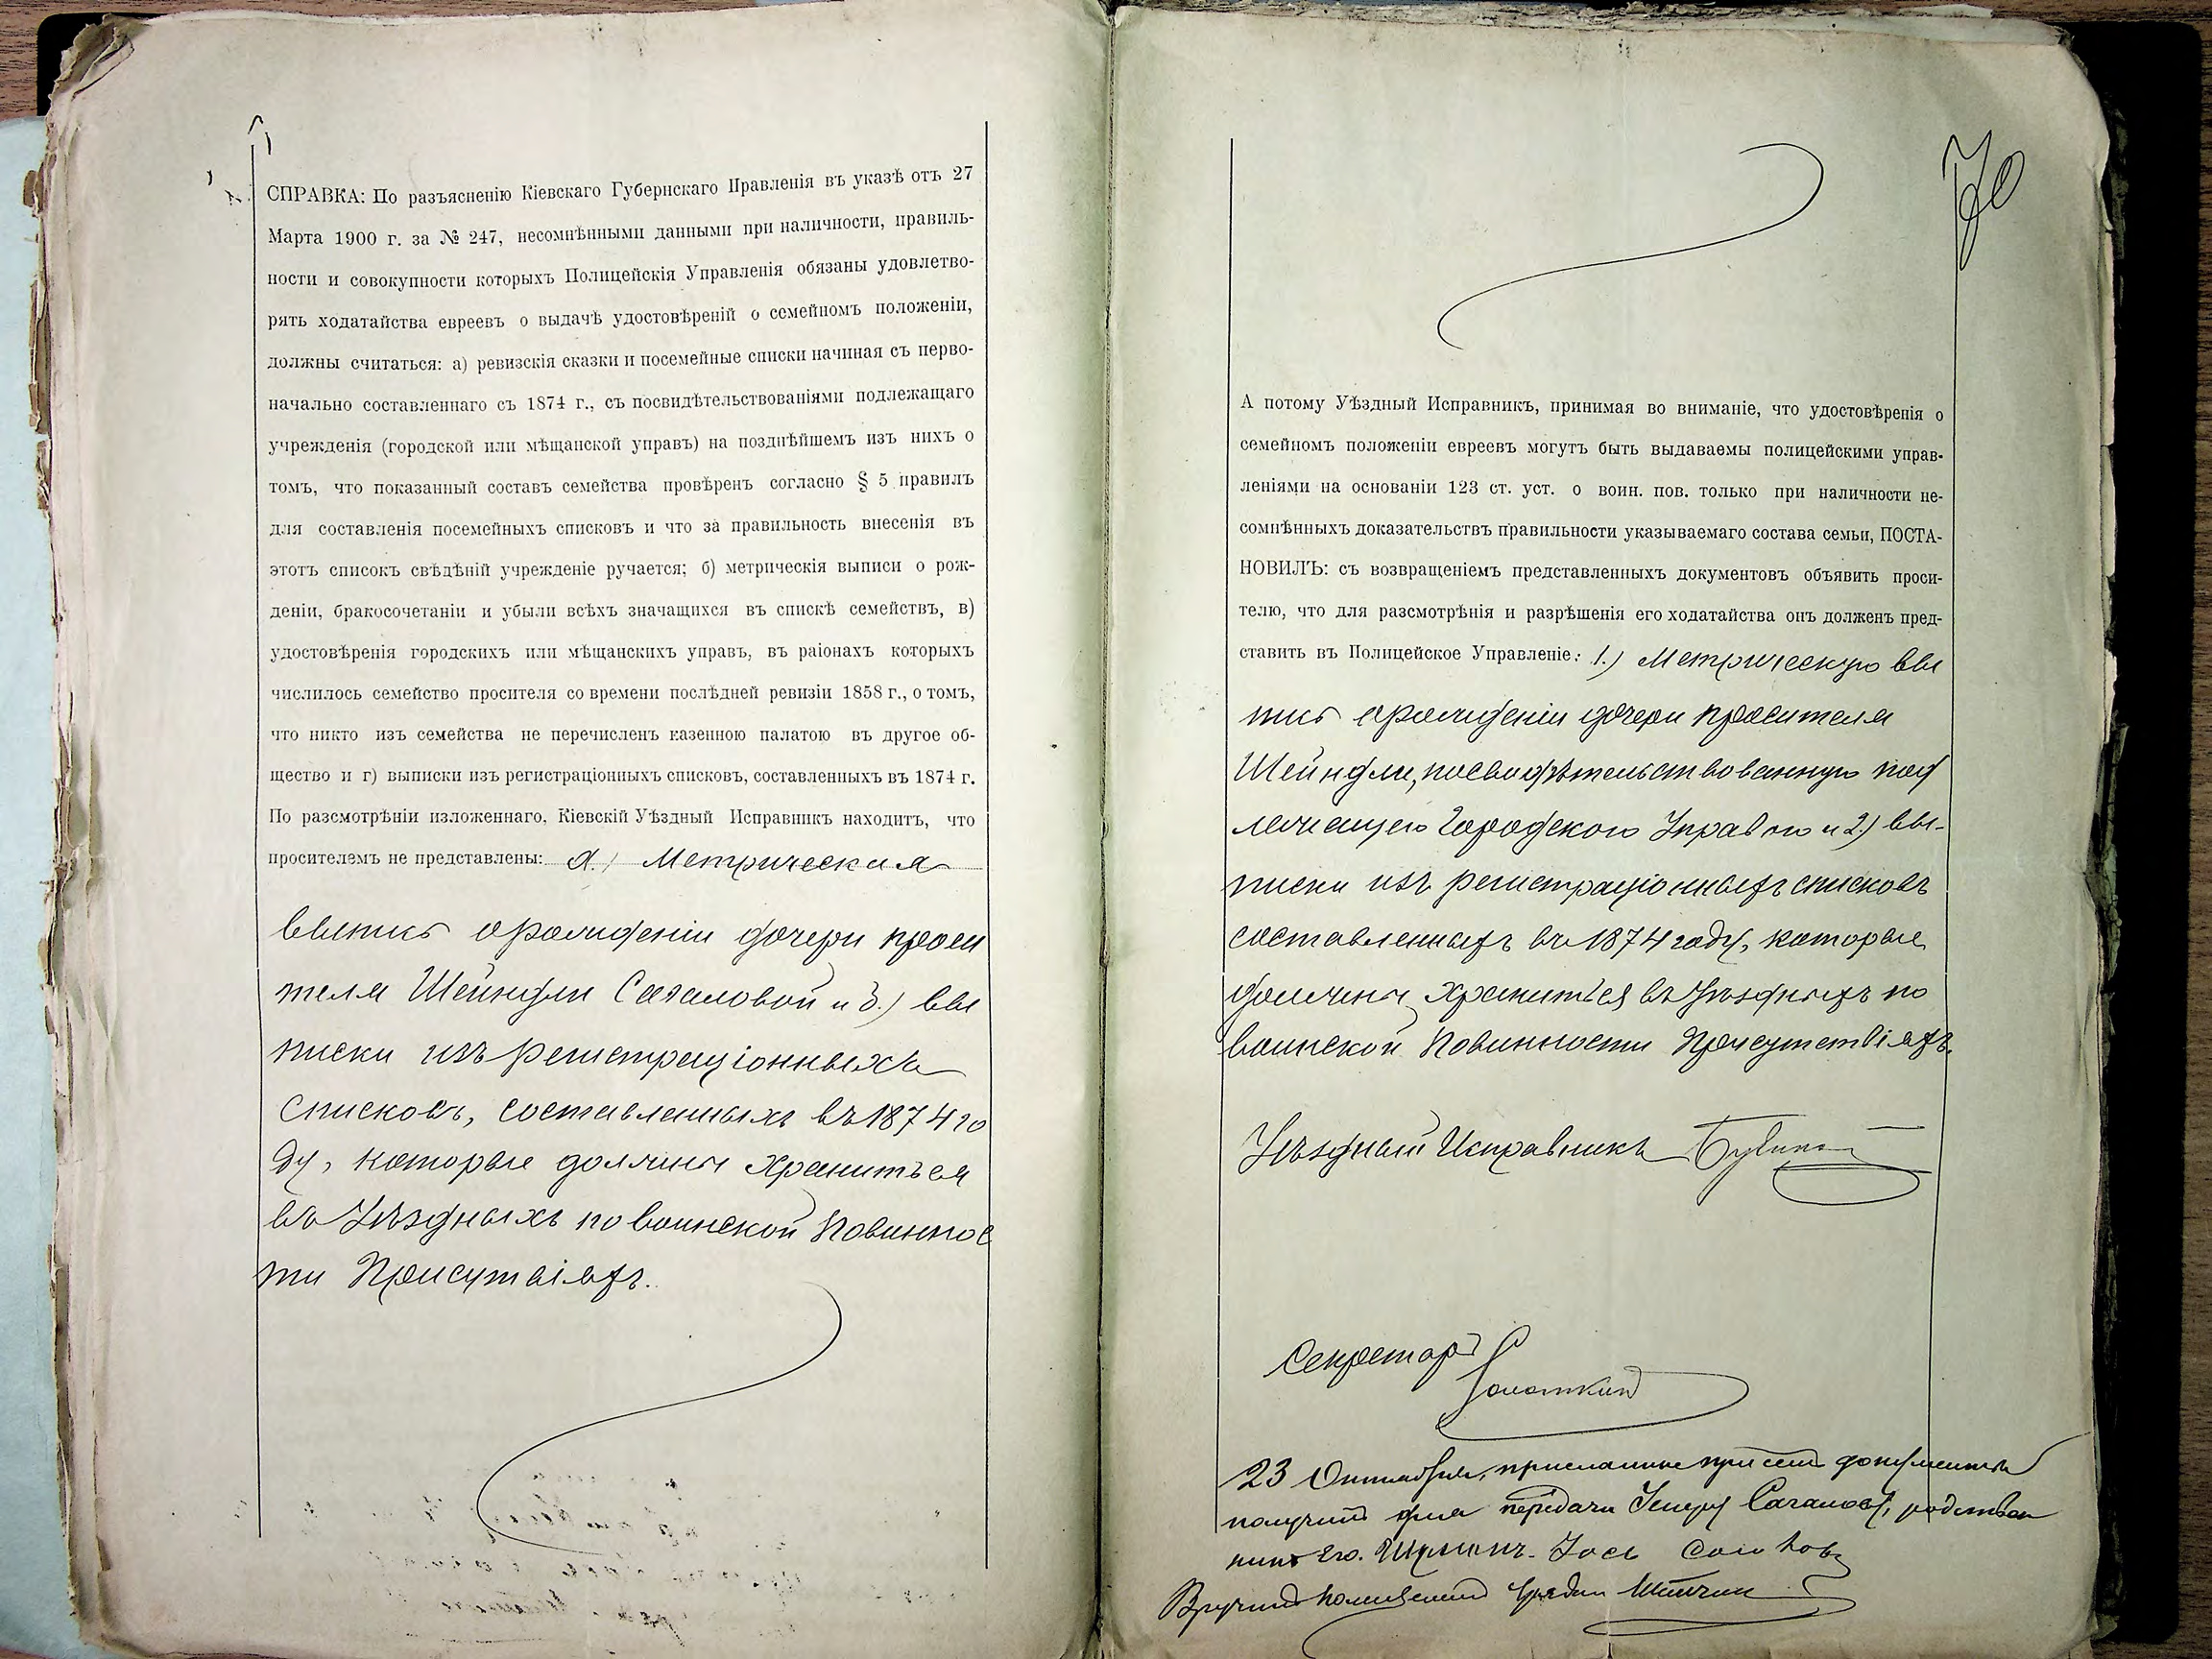 СПРАВКА: По разъясненію Кіевскаго Губернскаго Правленія въ указѣ отъ 27
Марта 1900 г. за № 247, несомнѣнными данными при наличности, правиль-
ности и совокупности которыхъ Полицейскія Управленія обязаны удовлетво-
рять ходатайства евреевъ о выдачѣ удостовѣреній о семейномъ положеніи,
должны считаться: а) ревизскія сказки и посемейные списки начиная съ перво-
начально составленнаго съ 1874 г., съ посвидѣтельствованіями подлежащаго
учрежденія (городской или мѣщанской управъ) на позднѣйшемъ изъ нихъ о
томъ, что показанный составъ семейства провѣренъ согласно § 5 правилъ
для составленія посемейныхъ списковъ и что за правильность внесенія въ
этотъ списокъ свѣдѣній учрежденіе ручается; б) метрическія выписи о рож-
деніи, бракосочетаніи и убыли всѣхъ значащихся въ спискѣ семействъ, в)
удостовѣренія городскихъ или мѣщанскихъ управъ, въ раіонахъ которыхъ
числилось семейство просителя со времени послѣдней ревизіи 1858 г., о томъ,
что никто изъ семейства не перечисленъ казенною палатою въ другое об-
щество и г) выписки изъ регистраціонныхъ списковъ, составленныхъ въ 1874 г.
По разсмотрѣніи изложеннаго, Кіевскій Уѣздный Исправникъ находитъ, что
просителемъ не представлены: а.) Метрическая
выпись о рожденіи дочери проси
теля Шейндли Сагаловой и б.) вы
писки изъ регистраціонныхъ
списковъ, составленныхъ въ 1874 го
ду, которые должны храниться
въ Уѣздныхъ по воинской Повиннос
ти Присутвіяхъ.
70
А потому Уѣздный Исправникъ, принимая во вниманіе, что удостовѣренія о
семейномъ положеніи евреевъ могутъ быть выдаваемы полицейскими управ-
леніями на основаніи 123 ст. уст. о воин. пов. только при наличности не-
сомнѣнныхъ доказательствъ правильности указываемаго состава семьи, ПОСТА-
НОВИЛЪ: съ возвращеніемъ представленныхъ документовъ объявить проси-
телю, что для разсмотрѣнія и разрѣшенія его ходатайства онъ долженъ пред-
ставить въ Полицейское Управленіе: 1.) Метрическую вы
пись о рожденіи дочери просителя
Шейндли, посвидѣтельствованную под
лежащею Городскою Управою и 2.) вы-
писки изъ регистраціонныхъ списковъ
составленныхъ въ 1874 году, которые
должны храниться въ Уѣздныхъ по
воинской Повинности Присутствіяхъ.
Уѣздный Исправникъ
Секретарь
23 Октября, присланные при семъ документы
получилъ для передачи Сагалову, родствен
никъ его. Іось
Вручилъ Полицейскій Урядн